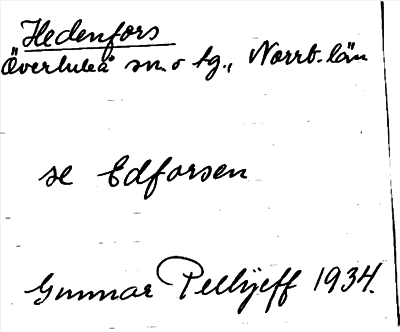 Hedenfors
Överluleå sn. o tg., Norrb. län
se Edforsen
Gunnar Pellijeff 1934.